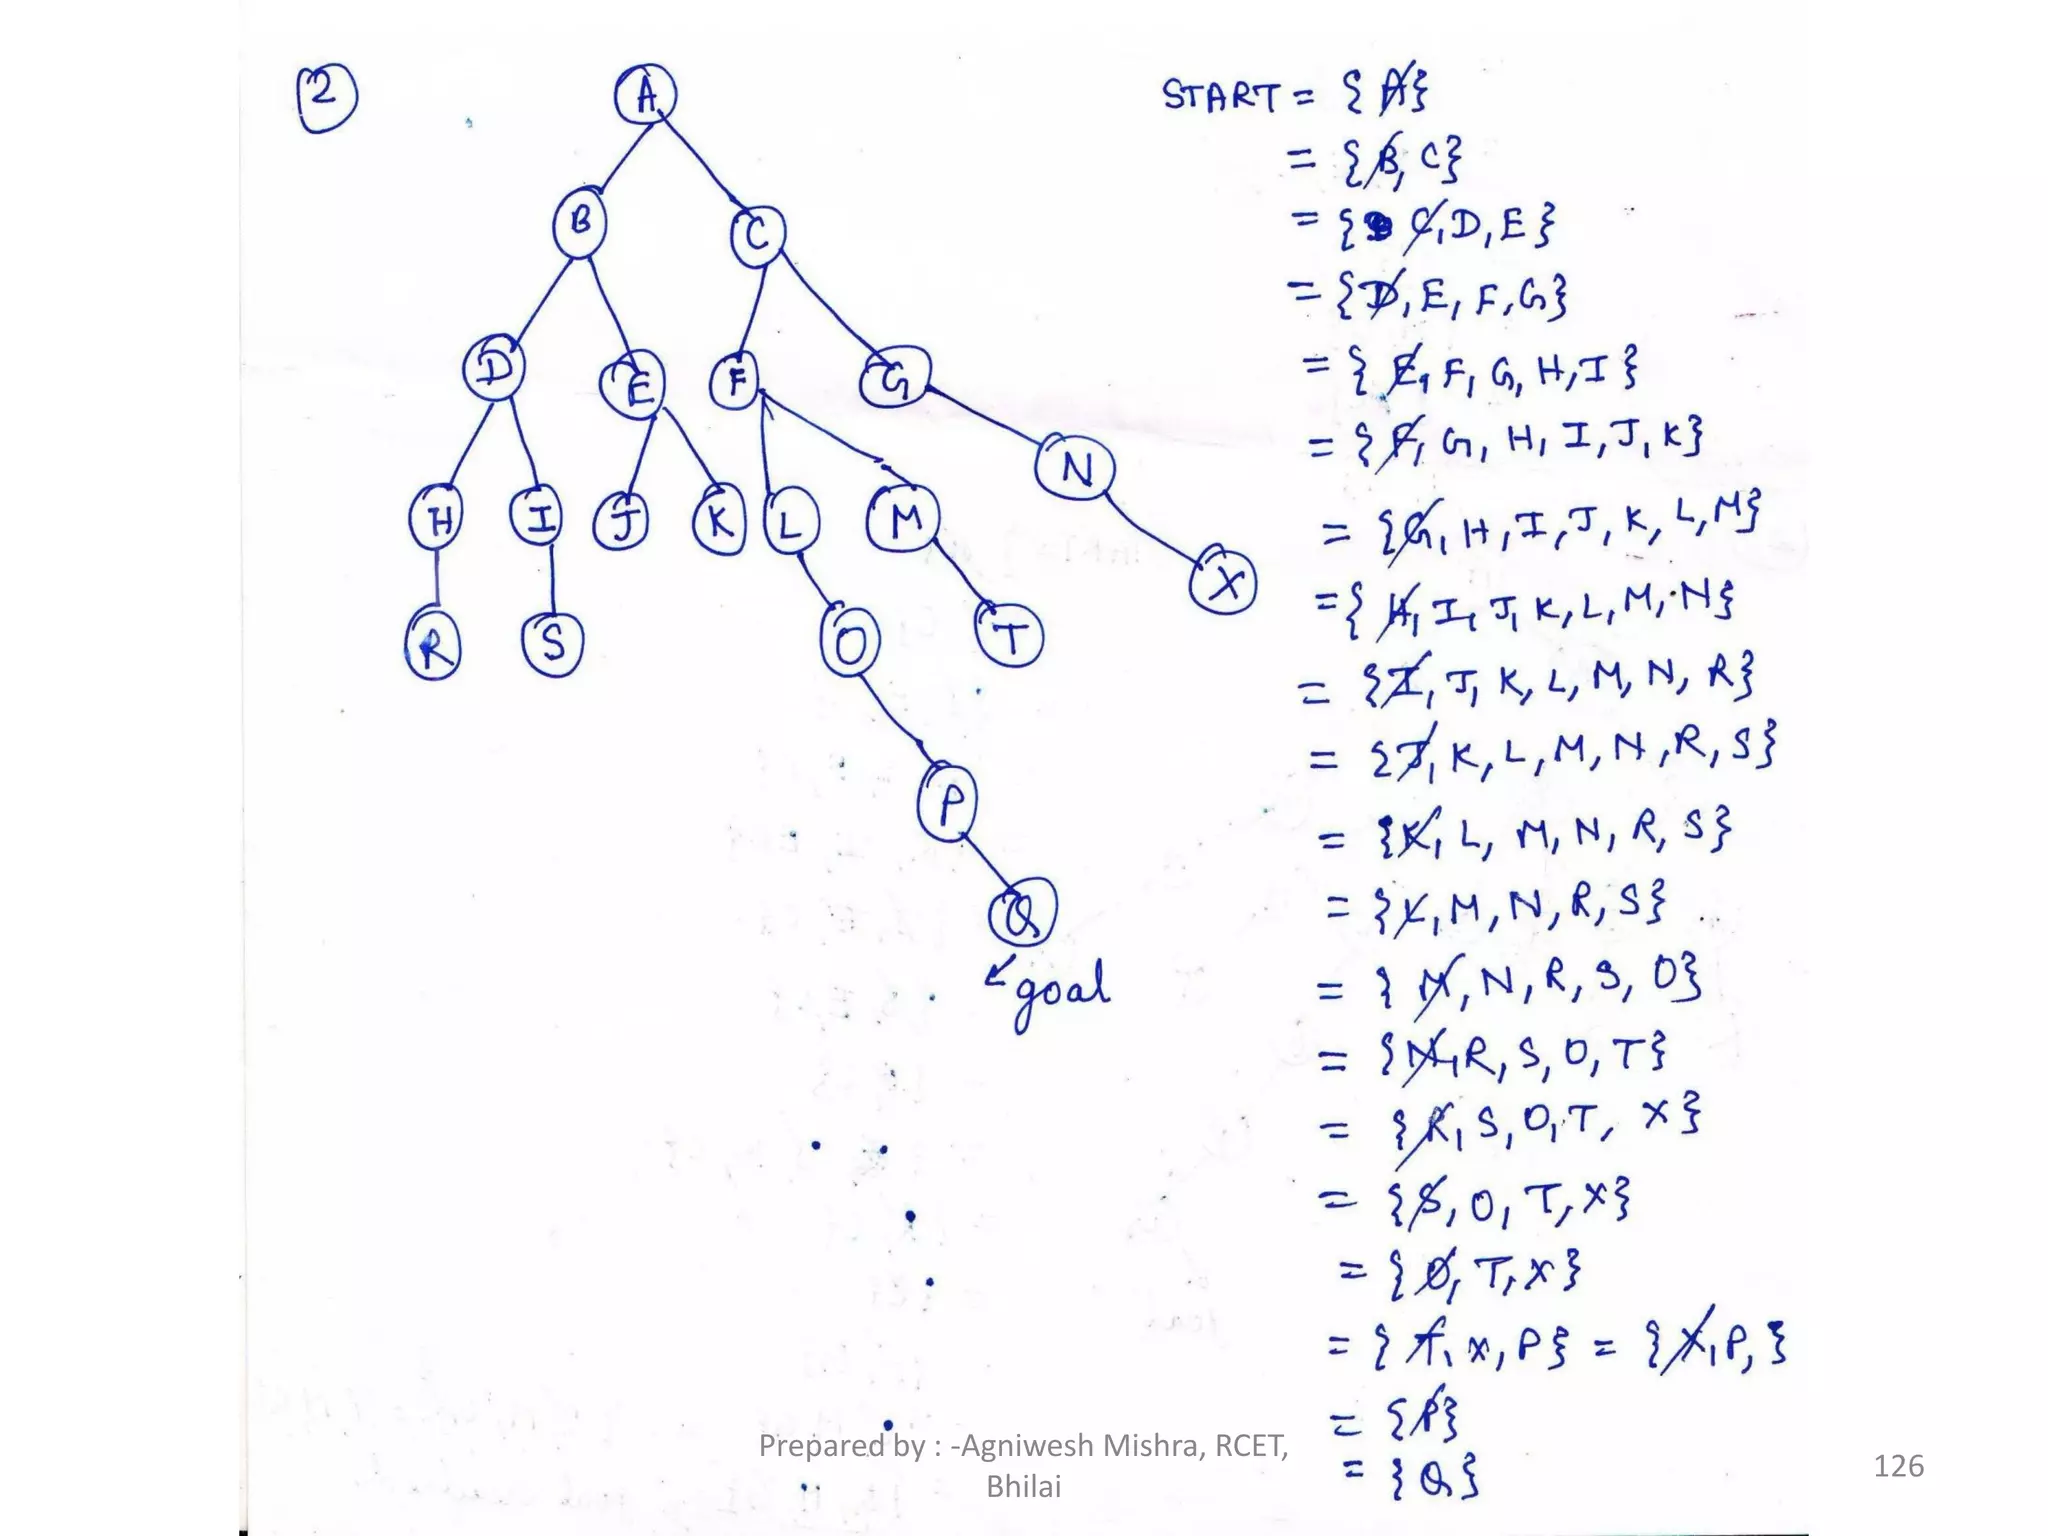 2
A
B C
D E F G
N
H I J K L M
X
R S O T
P
Q
goal
START = {A}
= {B, C}
= {C, D, E}
= {D, E, F, G}
= {E, F, G, H, I}
= {F, G, H, I, J, K}
= {G, H, I, J, K, L, M}
= {H, I, J, K, L, M, N}
= {I, J, K, L, M, N, R}
= {J, K, L, M, N, R, S}
= {K, L, M, N, R, S}
= {L, M, N, R, S}
= {M, N, R, S, O}
= {N, R, S, O, T}
= {R, S, O, T, X}
= {S, O, T, X}
= {O, T, X}
= {T, X, P} = {X, P, }
= {P}
= {Q}
Prepared by : -Agniwesh Mishra, RCET,
Bhilai
126